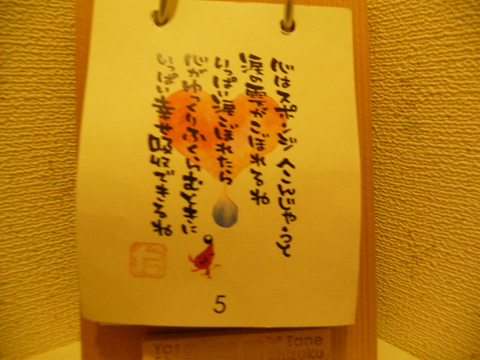 心はスポンジ へこんじゃうと
涙の雫がこぼれるね
いっぱい涙こぼれたら
心がゆっくりふくらむときに
いっぱい幸せ吸収できるね
5
Yasashisa no Tane
Shizuku